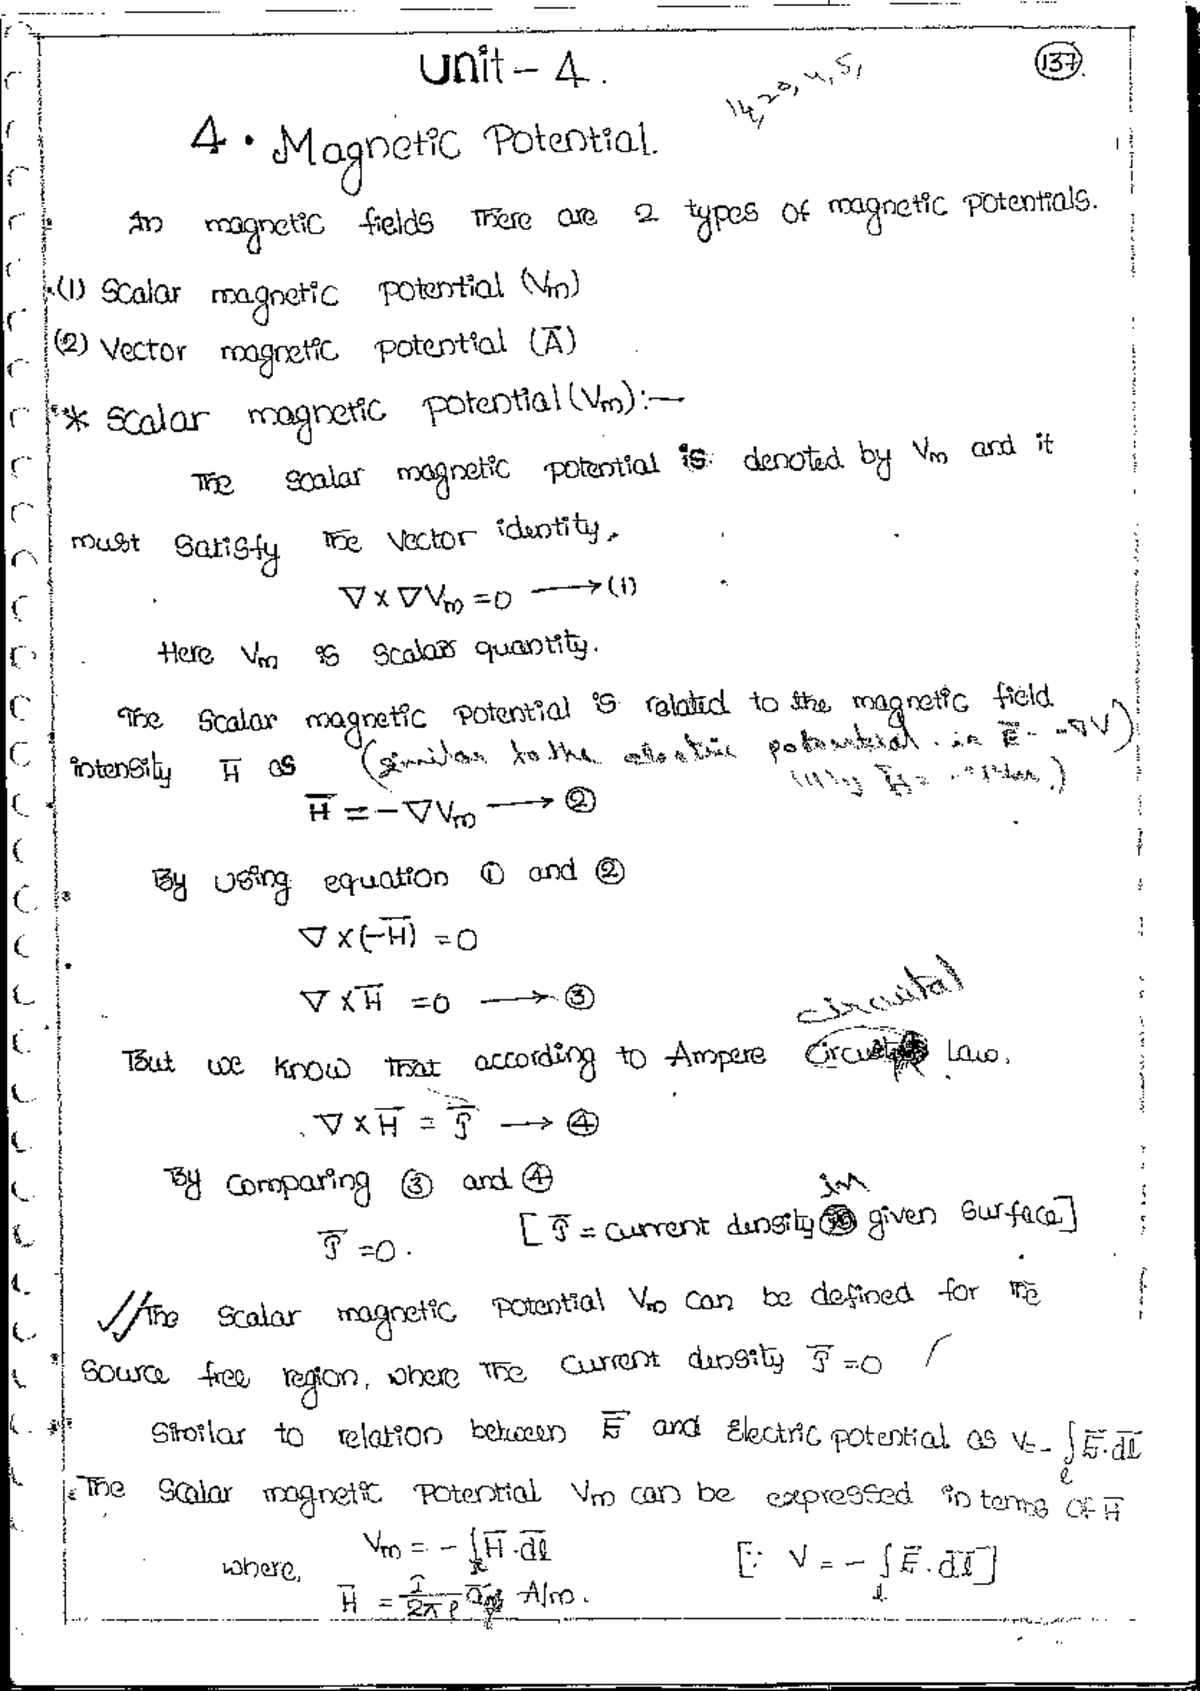 Unit - 4.
137
14, 20, 4, 5,
4. Magnetic Potential.
In magnetic fields There are 2 types of magnetic potentials.
(1) Scalar magnetic potential (Vm)
(2) Vector magnetic potential (A̅)
* Scalar magnetic potential (Vm):-
The scalar magnetic potential is denoted by Vm and it
must satisfy The Vector identity,
∇ x ∇Vm = 0 ⟶ (1)
Here Vm is scalar quantity.
The scalar magnetic potential is related to the magnetic field
intensity H̅ as (similar to the electric potential in E̅ = -∇V)
(lly H̅ =
H̅ = -∇Vm ⟶ ②
By using equation ① and ②
∇ x (-H̅) = 0
∇ x H̅ = 0 ⟶ ③
circuital
But we know that according to Ampere Law,
∇ x H̅ = J̅ ⟶ ④
By comparing ③ and ④
in
J̅ = 0. [J̅ = current density given surface]
// The scalar magnetic potential Vm can be defined for The
source free region, where The current density J̅ = 0
Similar to relation between E̅ and Electric potential as V = - ∫l E̅.dl̅
The scalar magnetic potential Vm can be expressed in terms of H̅
Vm = - ∫l H̅.dl̅ [∵ V = - ∫l E̅.dl̅]
where,
H̅ = I/2πρ a̅ A/m.